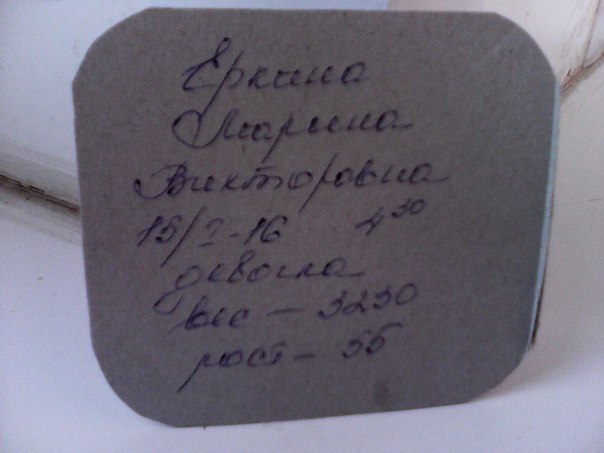 Еркина
Марина
Викторовна
15/I-16 4³⁰
девочка
вес – 3230
рост – 55